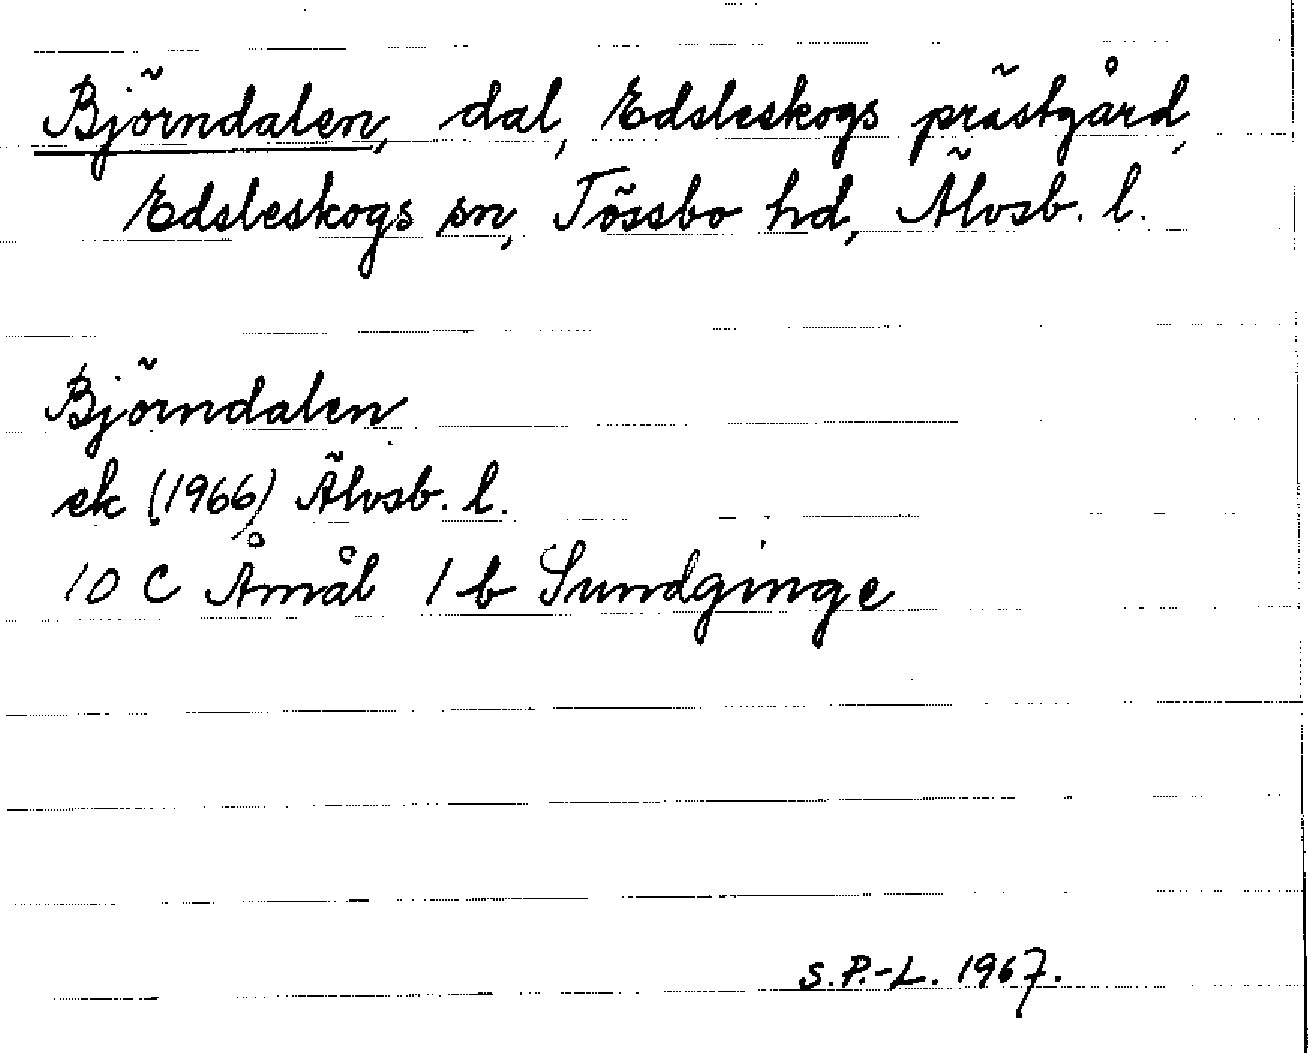 Björndalen, dal, Edsleskogs prästgård,
Edsleskogs sn, Tössbo hd, Älvsb. l.
Björndalen
ek (1966) Älvsb. l.
10 C Åmål 1 b Sundginge
S.P.-L. 1967.